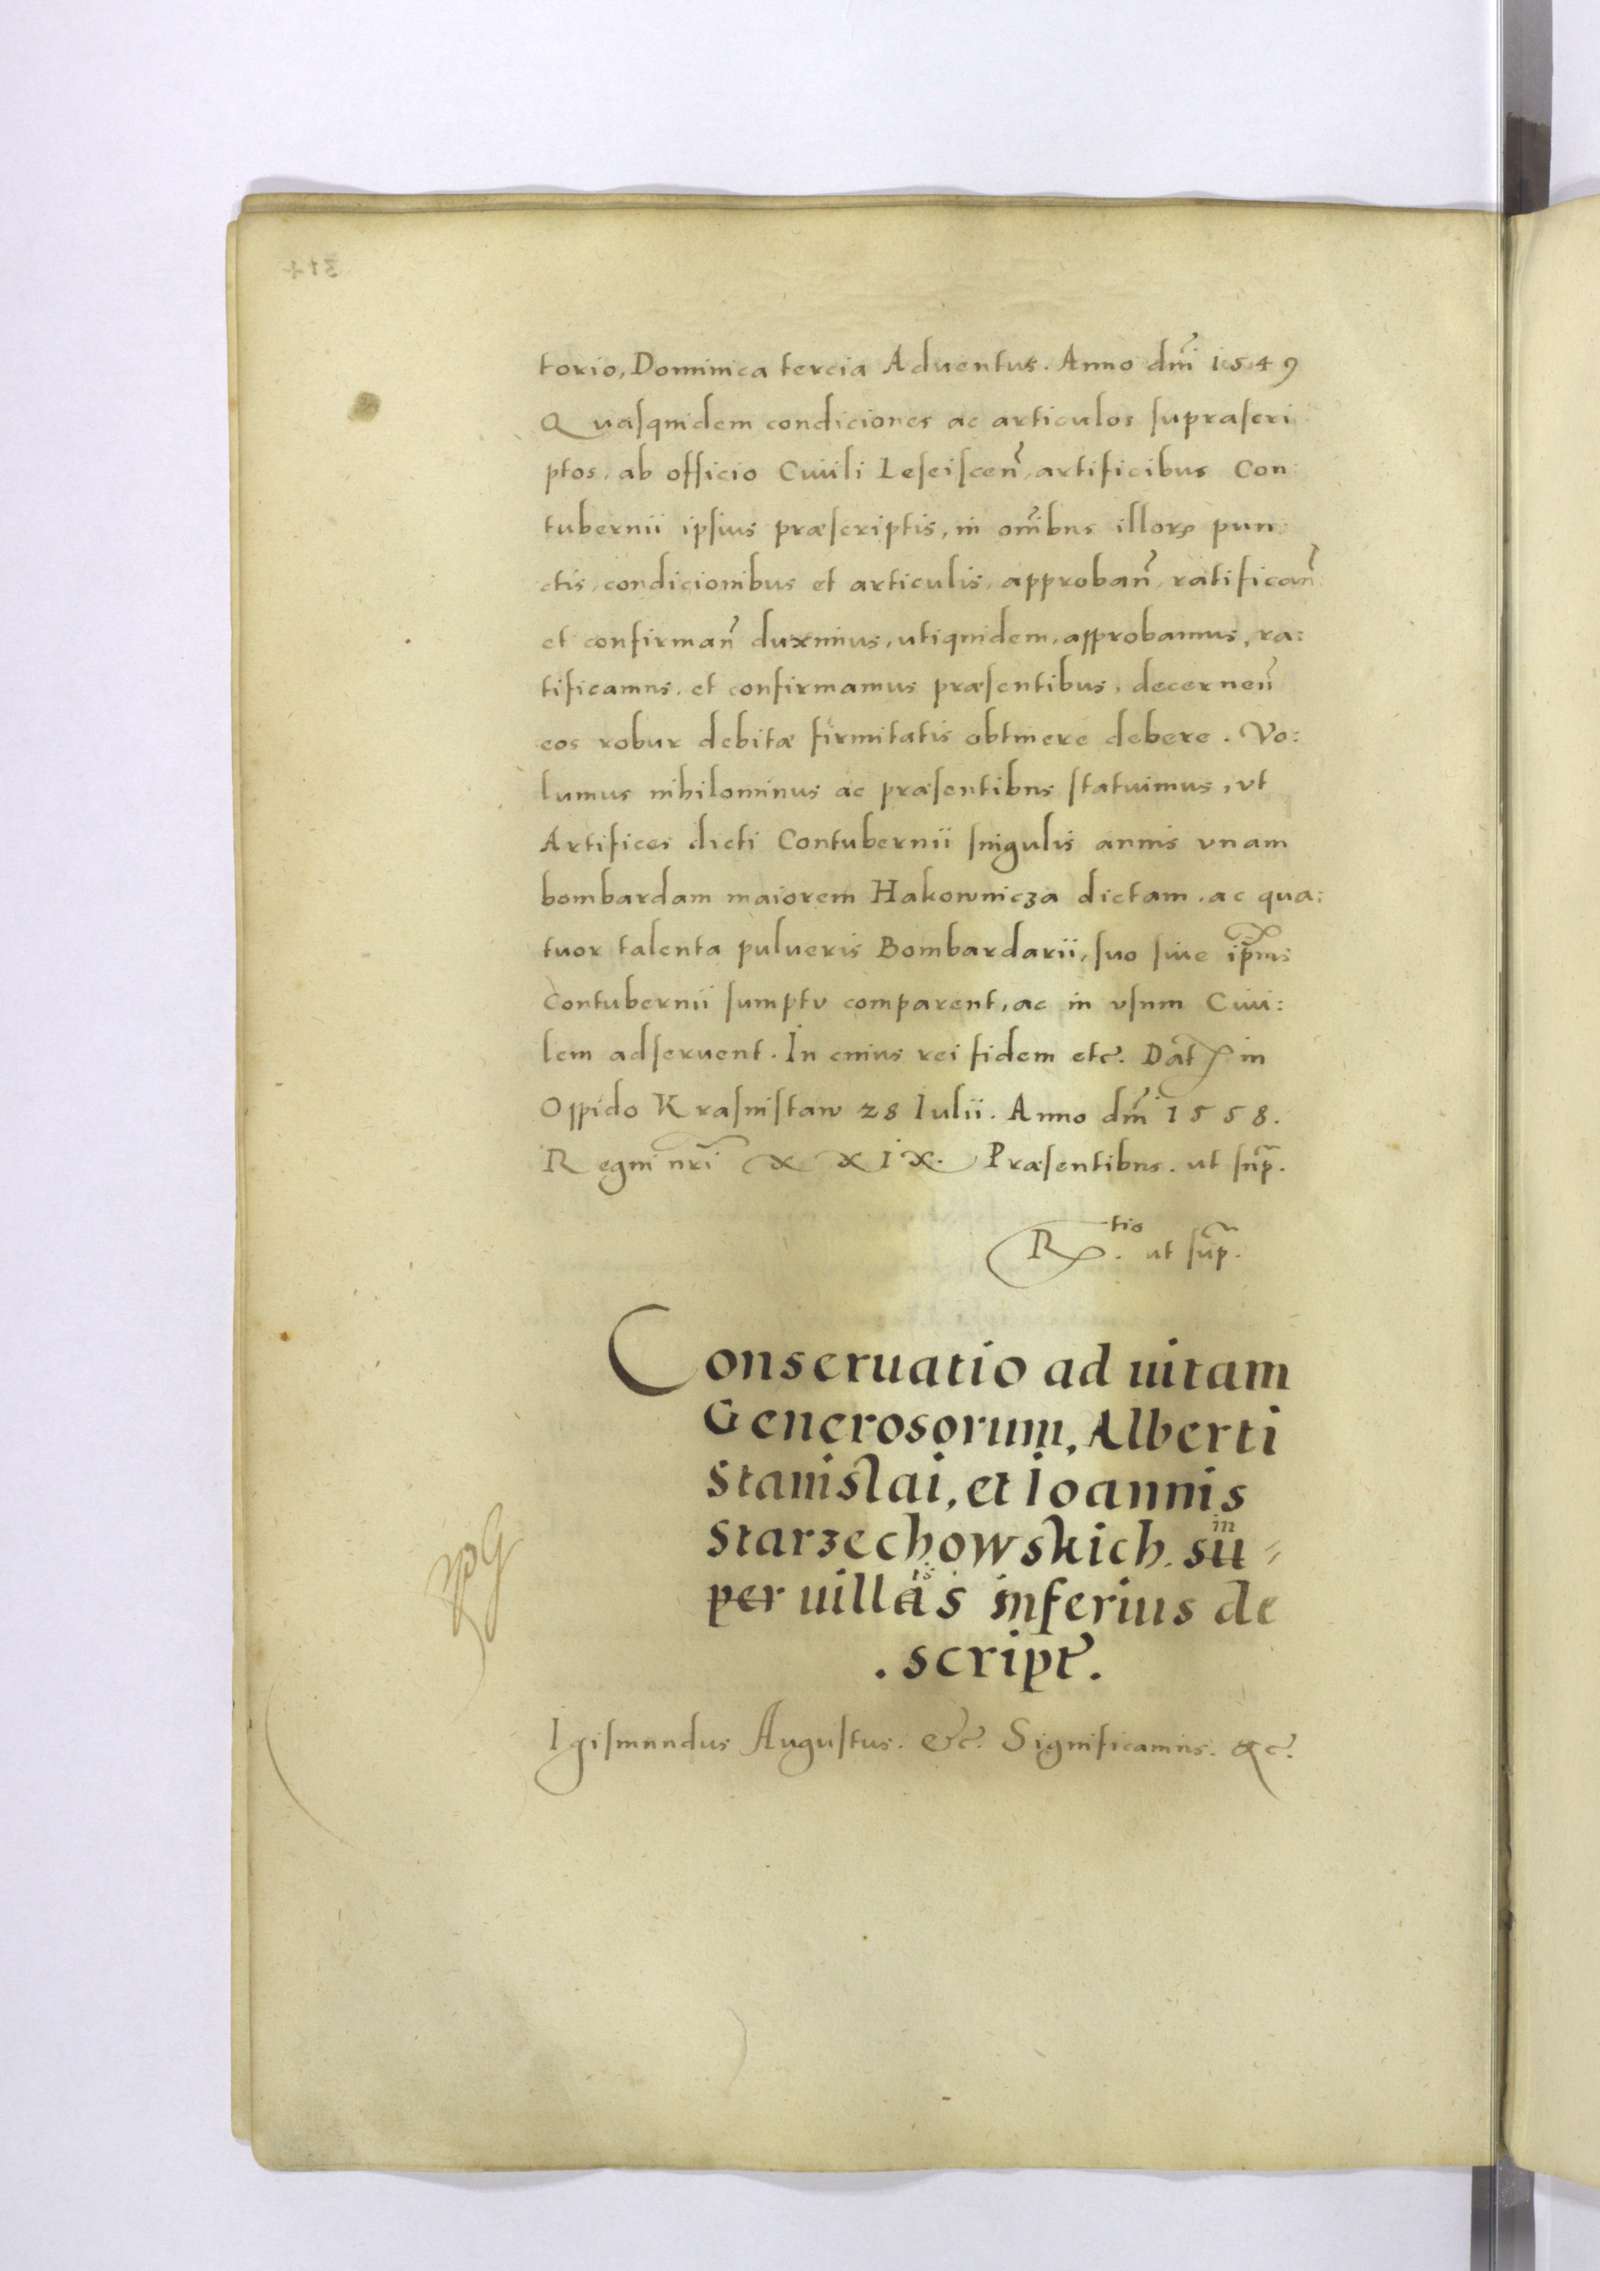 torio, Dominica tercia Aduentus. Anno dm̃i 1549
Quasquidem condiciones ac articulos suprascri
ptos, ab officio Ciuili Leseiscen̄, artificibus Con:
tubernii ipsius præscriptis, in om̃ibus illorꝝ pun:
ctis, condicionibus et articulis, approban̄, ratifican̄
et confirman̄ duximus, utiquidem, approbamus, ra:
tificamus, et confirmamus præsentibus, decernen̄
eos robur debitæ firmitatis obtinere debere. Vo:
lumus nihilominus ac præsentibus statuimus, vt
Artifices dicti Contubernii singulis annis vnam
bombardam maiorem Hakownicza dictam, ac qua:
tuor talenta pulueris Bombardarii, suo siue ip̄ius
Contubernii sumptu comparent, ac in vsum Ciui:
lem adseruent. In cuius rei fidem etc̃. Dat̃ in
Oppido Krasnistaw 28 Iulii. Anno dm̃i 1558.
Regni nr̃i XXIX. Præsentibus. ut sup̃.
R tio. ut sup̃.
Conseruatio ad uitam
Generosorum, Alberti
Stanislai, et Ioannis
Starzechowskich. su
per uillas inferius de
. script̃.
Igismundus Augustus. &c̃. Significamus. &c̃.